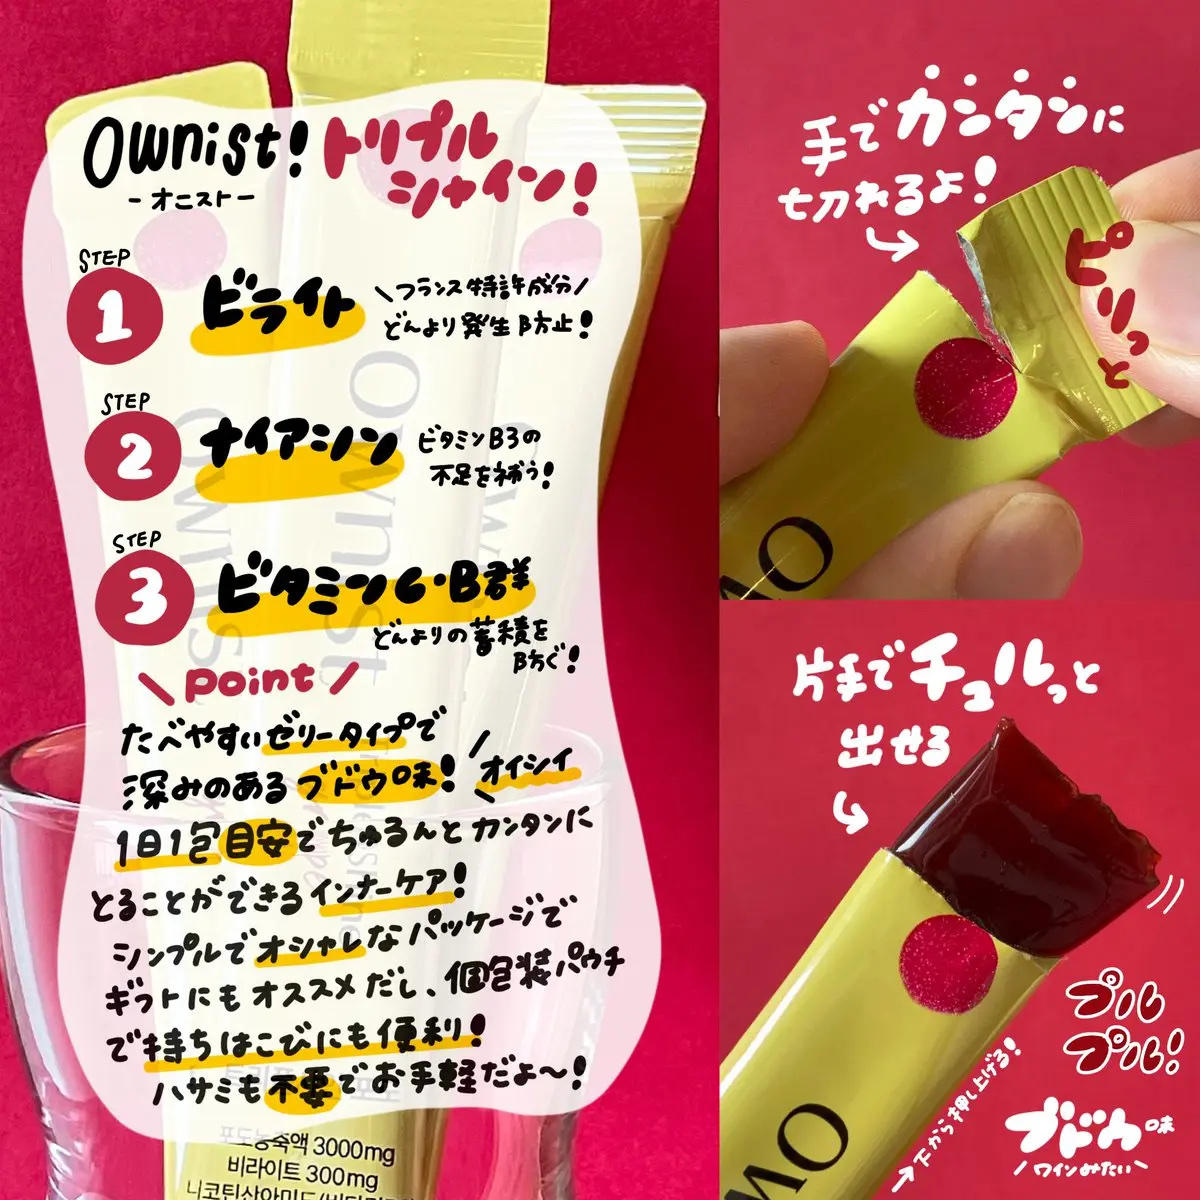 Ownist! トリプル
シャイン!
-オニスト-
STEP
1
ビライト
\フランス特許成分/
どんより発生防止!
STEP
2
ナイアシン
ビタミンB3の
不足を補う!
STEP
3
ビタミンC・B群
どんよりの蓄積を
防ぐ!
\ Point /
たべやすいゼリータイプで
深みのあるブドウ味! オイシイ
1日1包目安でちゅるんとカンタンに
とることができるインナーケア!
シンプルでオシャレなパッケージで
ギフトにもオススメだし、個包装パウチ
で持ちはこびにも便利!
ハサミも不要でお手軽だよ〜!
포도농축액 3000mg
비라이트 300mg
手でカンタンに
切れるよ!
ピリッと
OW
片手でチュルっと
出せる
プル
プル!
下から押し上げる!
ブドウ味
\ワインみたい\
OW